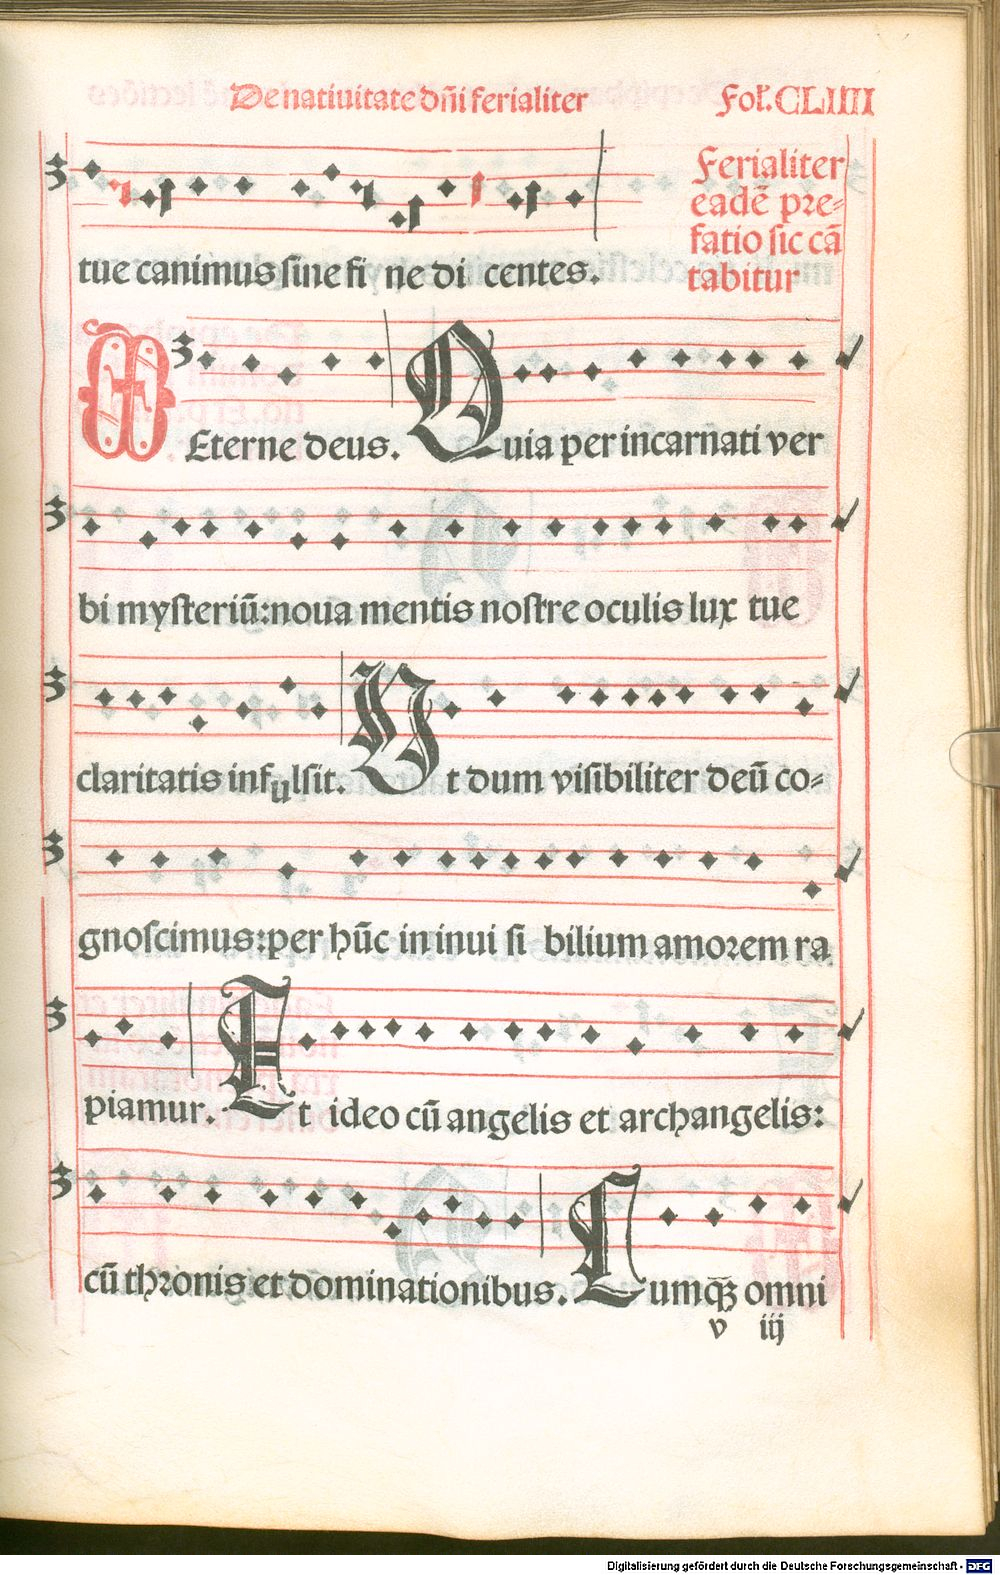 De natiuitate dñi ferialiter Fol. CLIIII
tue canimus sine fi ne di centes.
Ferialiter
eadē pre-
fatio sic cā
tabitur
Eterne deus. Quia per incarnati ver
bi mysteriū: noua mentis nostre oculis lux tue
claritatis infulsit. Ut dum visibiliter deū co-
gnoscimus: per hūc in inui si bilium amorem ra
piamur. Et ideo cū angelis et archangelis:
cū thronis et dominationibus. Cumqꝫ omni
v iij
Digitalisierung gefördert durch die Deutsche Forschungsgemeinschaft - DFG